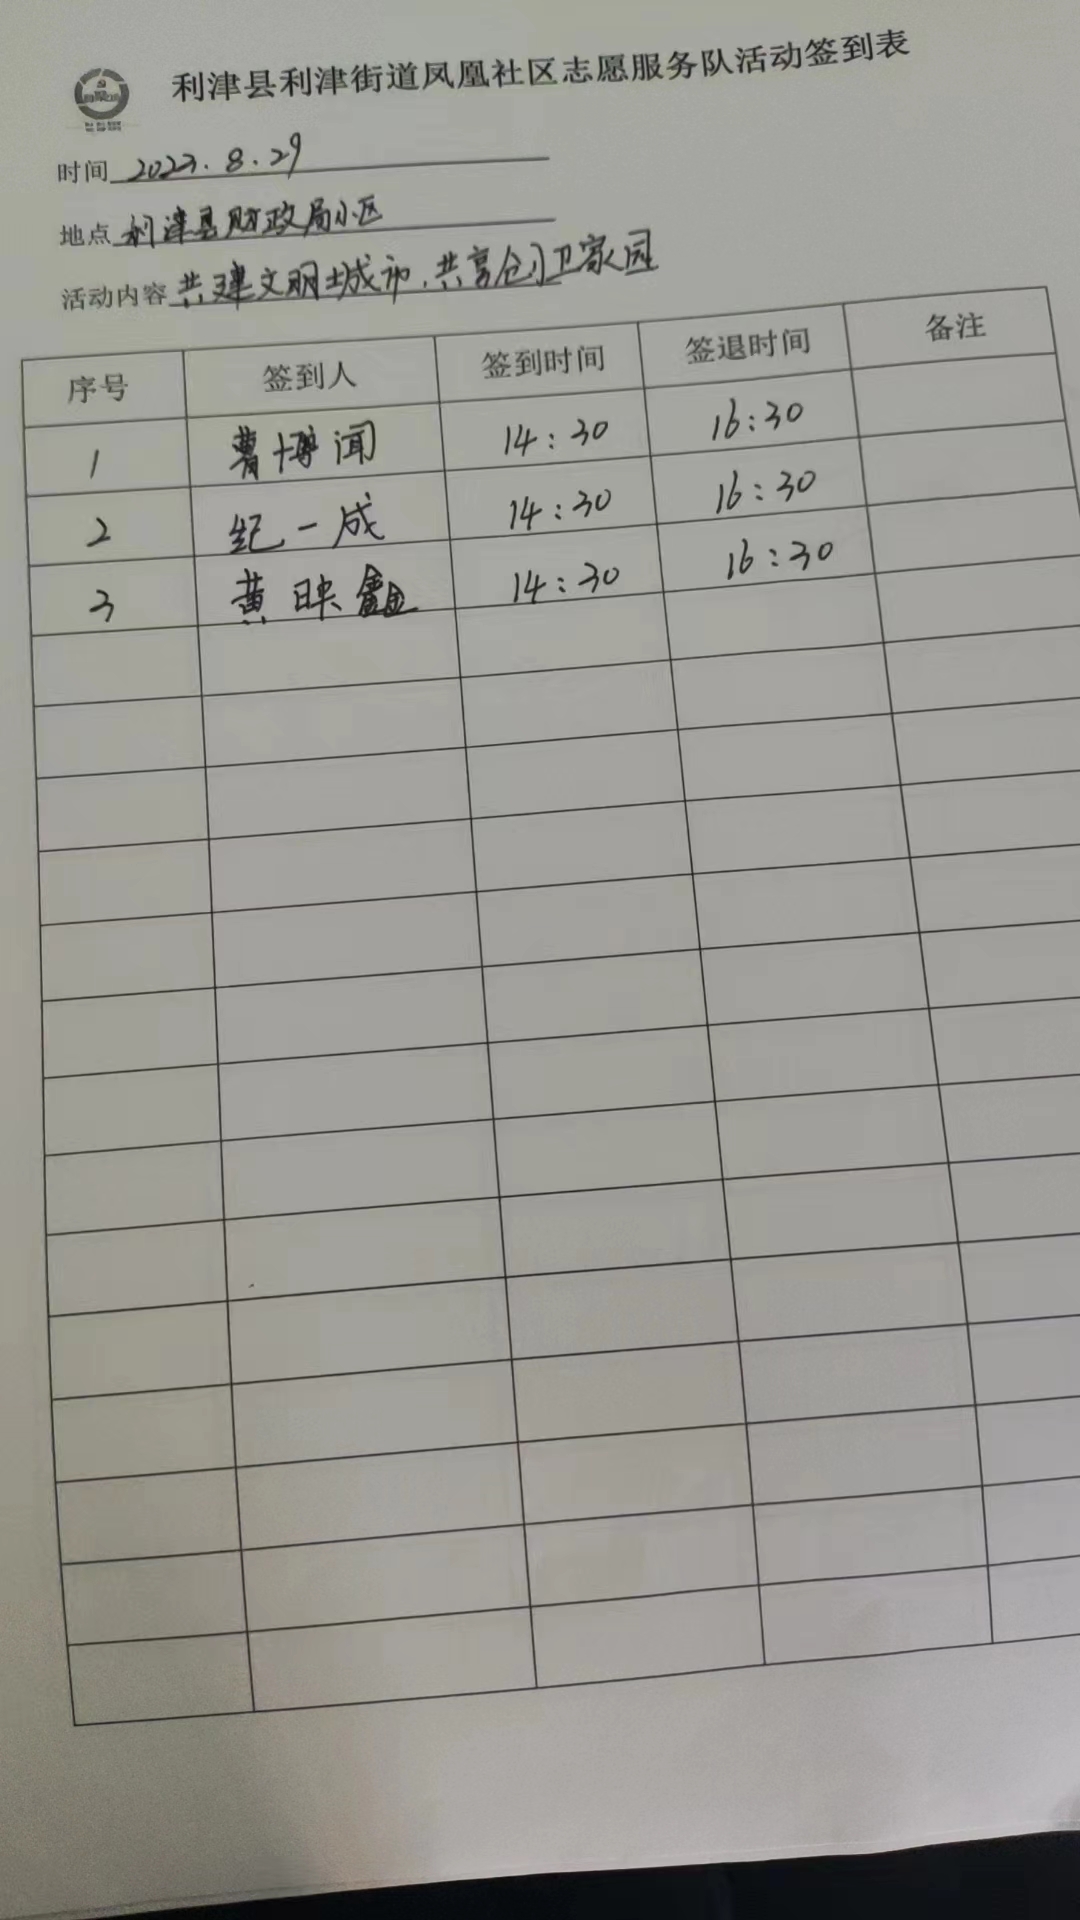 利津县利津街道凤凰社区志愿服务队活动签到表
时间 2023.8.29
地点 利津县财政局小区
活动内容 共建文明城市，共享创卫家园
序号 签到人 签到时间 签退时间 备注
1 曹博闻 14:30 16:30
2 纪一成 14:30 16:30
3 黄映鑫 14:30 16:30